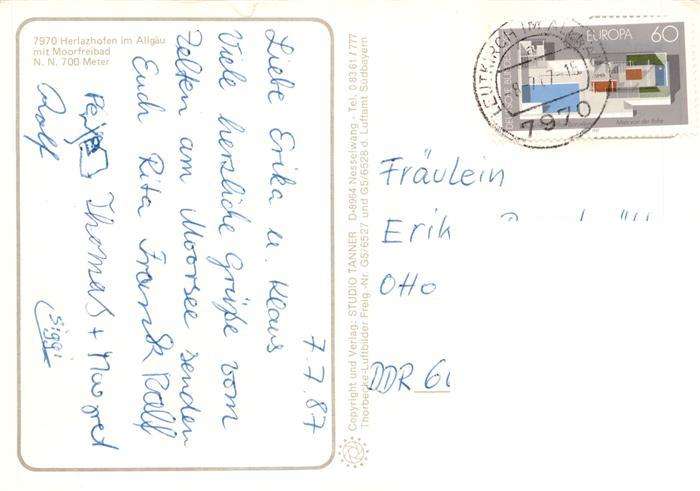 7970 Herlazhofen im Allgäu
mit Moorfreibad
N. N. 700 Meter
7.7.87
Liebe Erika u. Klaus
Viele herzliche Grüße vom
Zelten am Moorsee senden
Euch Rita Frank Ralf
Thomas + Margret
Rolf
(Siggi)
Copyright und Verlag: STUDIO TANNER D-8964 Nesselwang - Tel. 0 83 61 / 777
Thorbecke-Luftbilder Freig.-Nr. G5/6527 und G5/6528 d. Luftamt Südbayern
EUROPA 60
7970
Fräulein
Erik
Otto
DDR